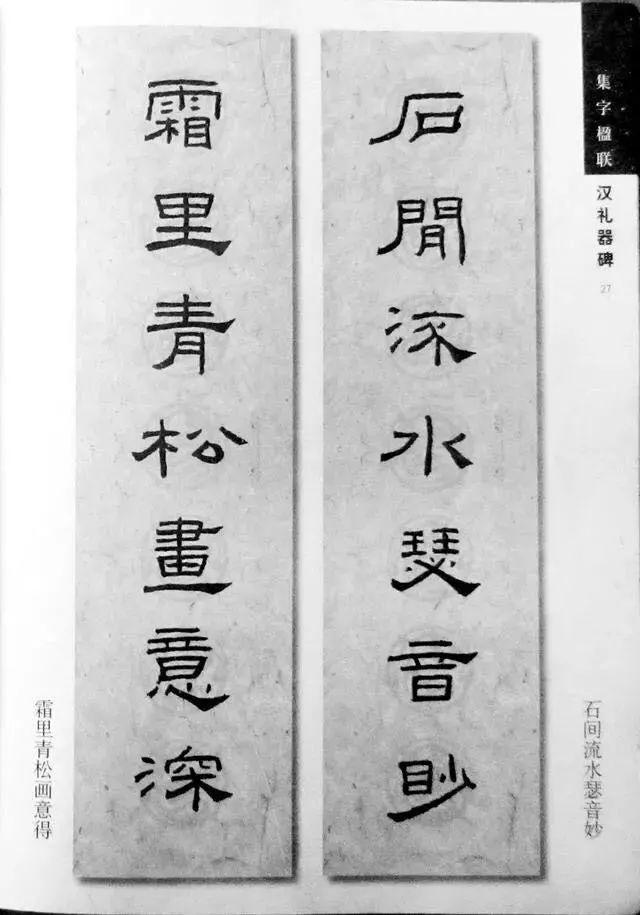 集字楹联
汉礼器碑
27
石閒流水瑟音眇
霜里青松畫意深
石间流水瑟音妙
霜里青松画意得